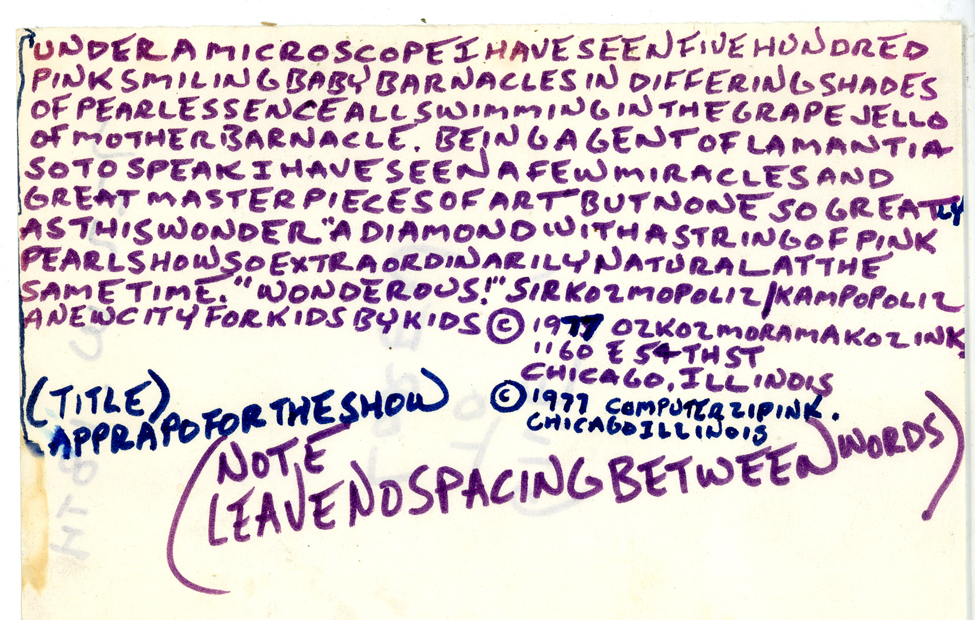 UNDER A MICROSCOPE I HAVE SEEN FIVE HUNDRED
PINKSMILINGBABYBARNACLESIN DIFFERINGSHADES
OF PEARLESSENCEALLSWIMMINGINTHEGRAPEJELLO
OF MOTHERBARNACLE. BEINGAGENTOFLAMANTIA
SOTOSPEAKIHAVESEENAFEWMIRACLESAND
GREATMASTERPIECESOFART BUTNONE SO GREATLY
ASTHISWONDER."ADIAMONDWITHASTRINGOFPINK
PEARLSHOWSOEXTRAORDINARILYNATURALATTHE
SAMETIME." "WONDEROUS!" SIRKOZMOPOLIZ/KAMPOPOLIZ
ANEWCITYFORKIDSBYKIDS © 1977 OZKOZMORAMAKOZINK
1160 E 54TH ST
CHICAGO, ILLINOIS
(TITLE)
APPRAPOFORTHESHOW)
© 1977 COMPUTERZIPINK.
CHICAGOILLINOIS
(NOTE
LEAVENOSPACINGBETWEENWORDS)